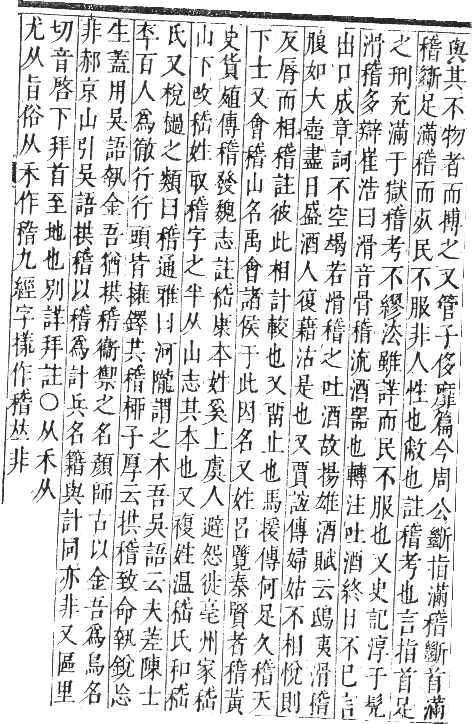 與其不物者而搏之又管子侈靡篇今周公斷指滿稽斷首滿
稽斷足滿稽而死民不服非人性也敝也註稽考也言指首足
之刑充滿于獄稽考不繆法雖詳而民不服也又史記淳于髡
滑稽多辯崔浩曰滑音骨稽流酒器也轉注吐酒終日不已言
出口成章詞不空竭若滑稽之吐酒故揚雄酒賦云鴟夷滑稽
腹如大壺盡日盛酒人復藉沽是也又賈誼傳婦姑不相悅則
反脣而相稽註彼此相計較也又留止也馬援傳何足久稽天
下士又會稽山名禹會諸侯于此因名又姓呂覽秦賢者稽黃
史貨殖傳稽發魏志註嵇康本姓奚上虞人避怨徙亳州家嵇
山下改嵇姓取稽字之半从山志其本也又複姓温嵇氏和嵇
氏又梲檛之類曰稽通雅曰河隴謂之木吾吳語云夫差陳士
卒百人爲徹行行頭皆擁鐸共稽栁子厚云拱稽致命執銳忘
生蓋用吳語執金吾猶拱稽衞禦之名顏師古以金吾爲鳥名
非郝京山引吳語拱稽以稽爲計兵名籍與計同亦非又區里
切音啓下拜首至地也别詳拜註○从禾从
尤从旨俗从禾作稽九經字㨾作𥡴𠀤非